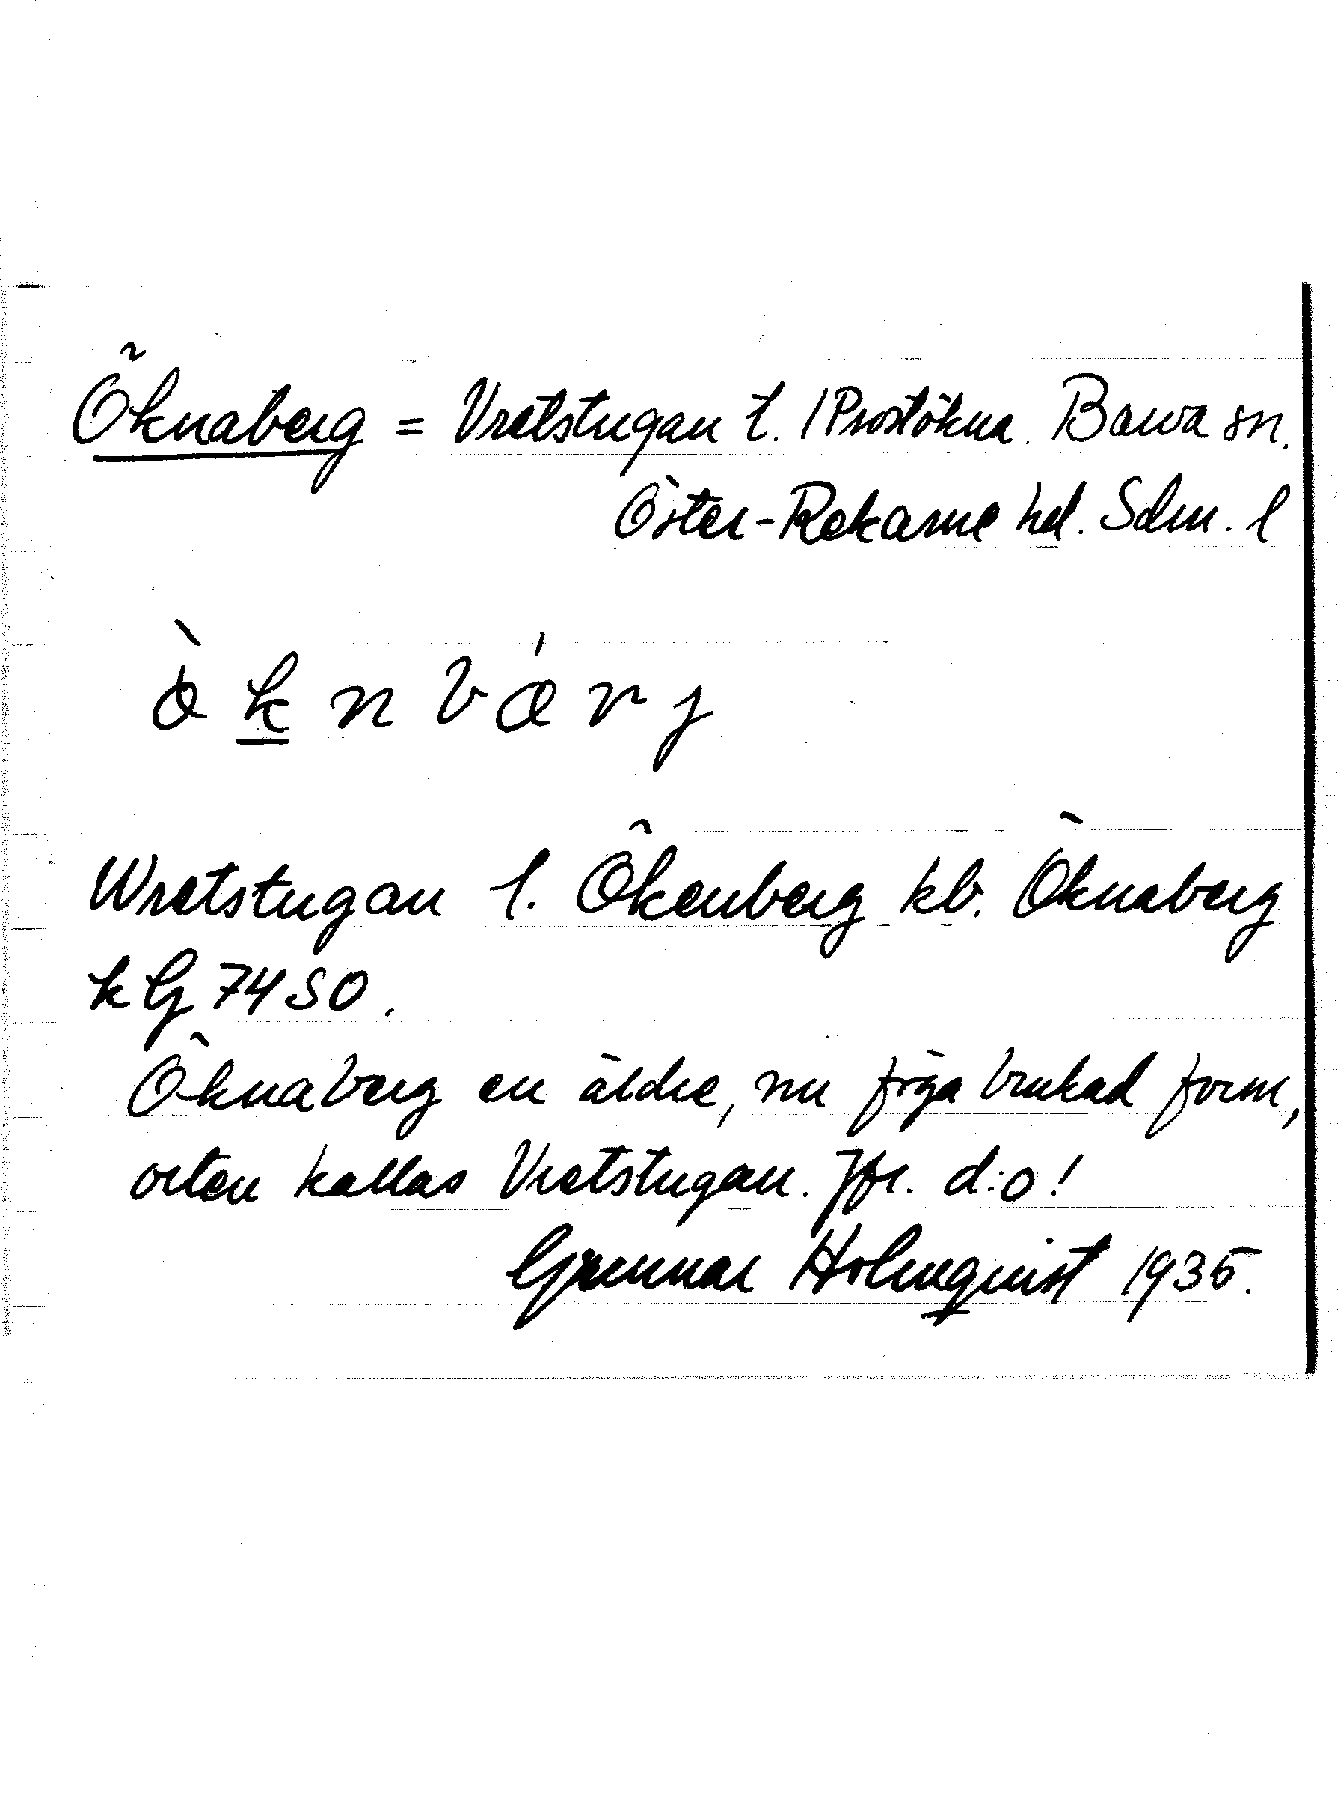 Öknaberg = Vretstugan t. /Prostökna. Barva sn.
Öster-Rekarne hd. Sdm. l
ö̀ k n b ά r j
Wretstugan l. Ökenberg kb. Öknaberg
k G 74 SO.
Öknaberg en äldre, nu föga brukad form,
orten kallas Vretstugan. Jfr. d:o!
Gunnar Holmquist 1935.